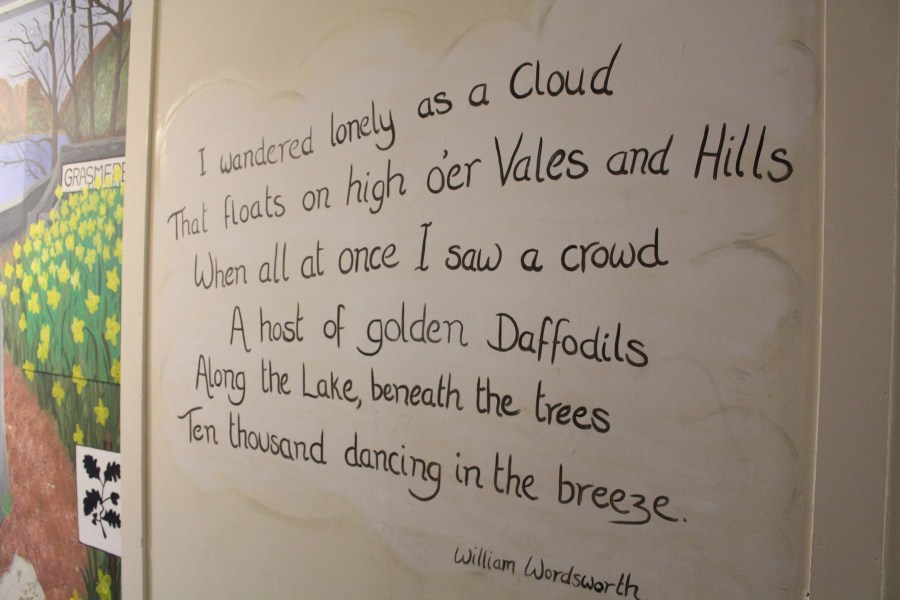 GRASMERE
I wandered lonely as a Cloud
That floats on high o'er Vales and Hills
When all at once I saw a crowd
A host of golden Daffodils
Along the Lake, beneath the trees
Ten thousand dancing in the breeze.
William Wordsworth